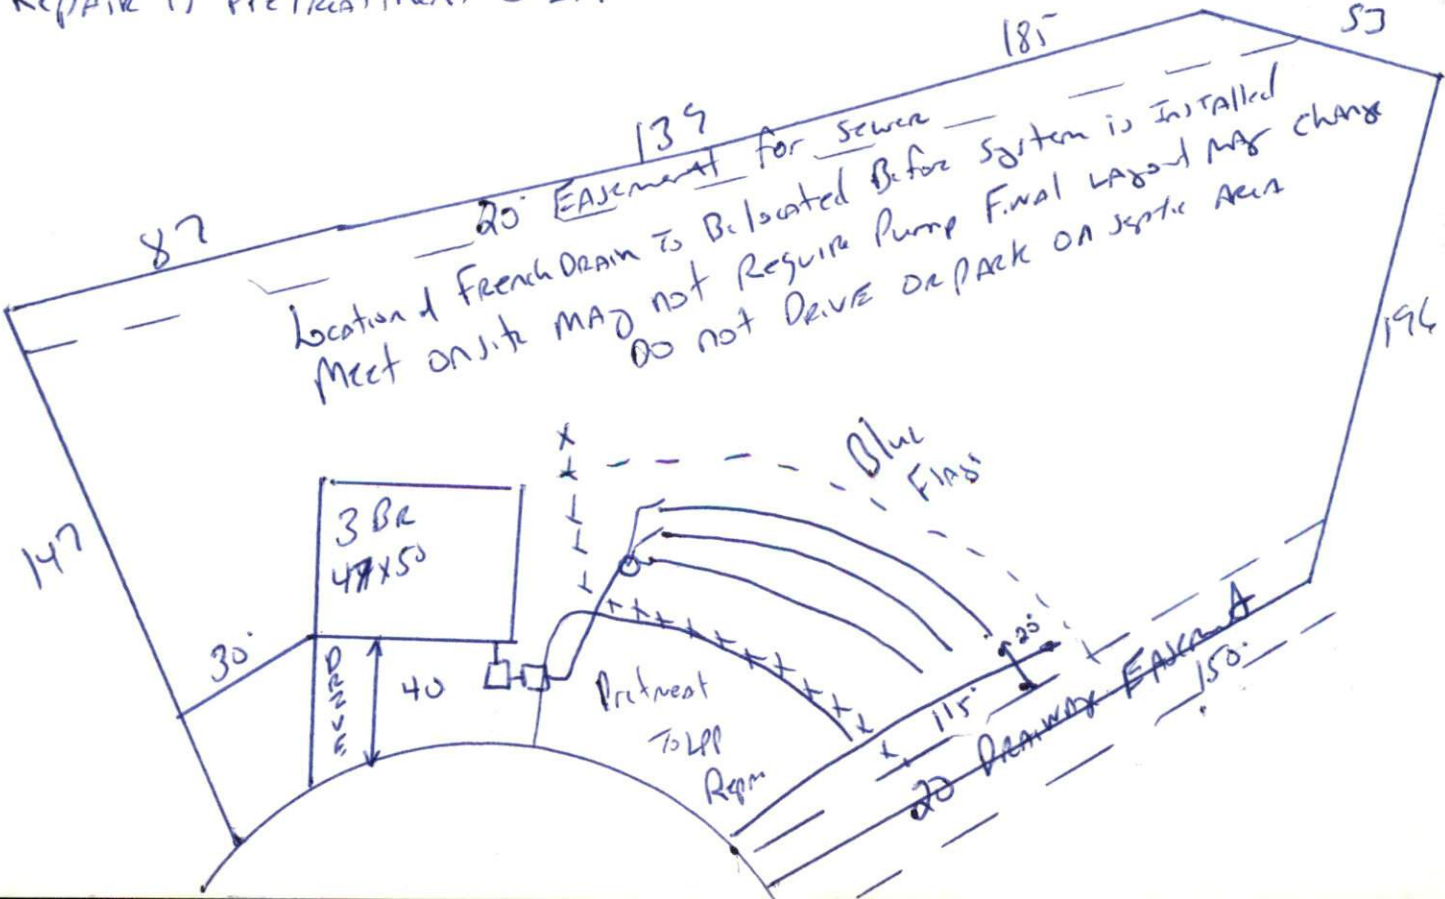 Repair is Pretreatment
185
53
139
87
20' Easement for Sewer
Location of French Drain To Be located Before System is Installed
Meet onsite May not Require Pump Final Layout May Change
Do not Drive or park on septic Area
196
147
Blue
Flags
3 BR
47x50
30'
DRIVE
40
Pretreat
To LPP
Repair
20'
115'
20 Drainway Easement
150'